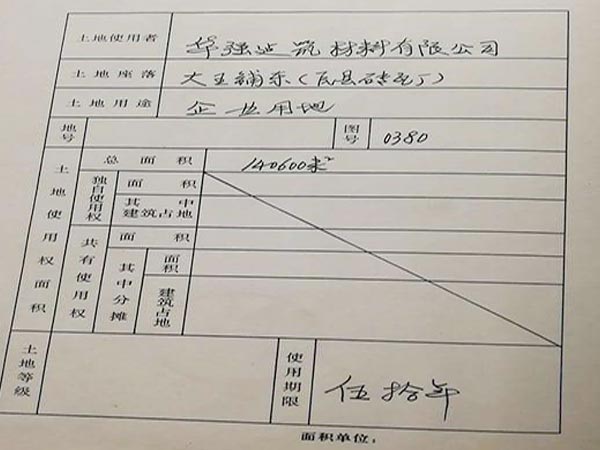 土地使用者 华强建筑材料有限公司
土地座落 大王铺东(瓦县砖瓦厂)
土地用途 企业用地
地号 图号 0380
土地使用权面积
总面积 140600米²
独自使用权
面积
其中建筑占地
共有使用权
面积
其中分摊
面积
建筑占地
土地等级
使用期限 伍拾年
面积单位: